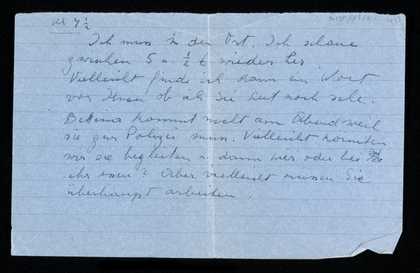 Ich muss in den Ort. Ich schaue
zwischen 5 u. ½ 6 wieder her
Vielleicht finde ich dann ein Wort
von Ihnen ob ich Sie heut noch sehe.
Bettina kommt nicht am Abend weil
sie zur Polizei muss. Vielleicht könnten
wir sie begleiten u. dann hier oder bei
ihr essen? Aber vielleicht müssen Sie
überhaupt arbeiten